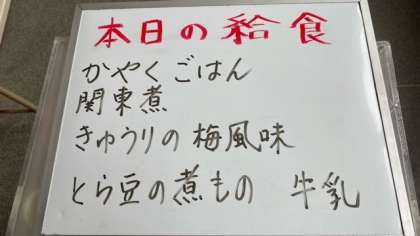 本日の給食
かやくごはん
関東煮
きゅうりの梅風味
とら豆の煮もの 牛乳